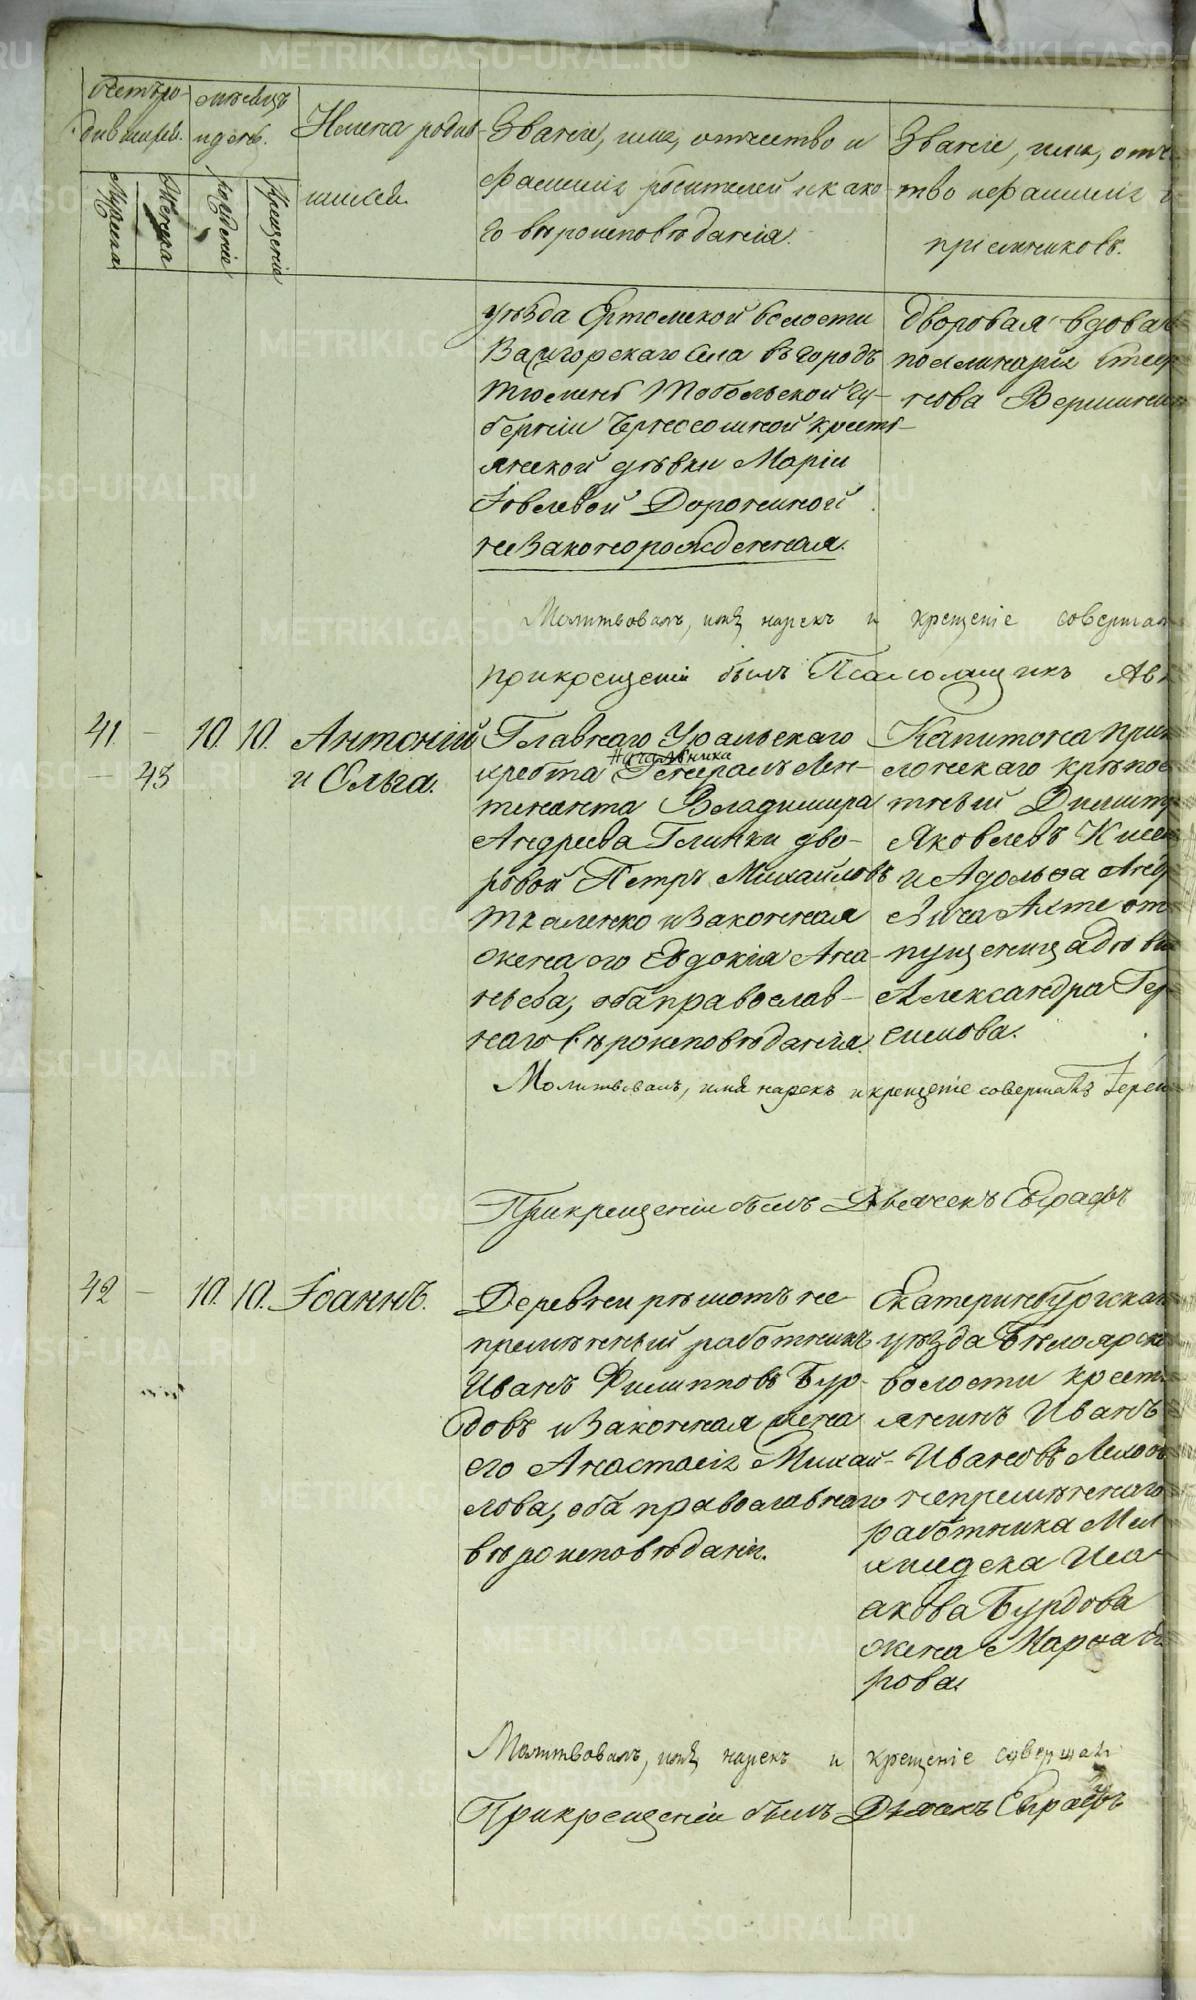 Счетъ ро-
дившихся.
Мѣсяцъ
и день.
Имена родив-
шихся.
Званіе, имя, отчество и
фамилія родителей и како-
го вѣроисповѣданія.
Званіе, имя, отче-
ство и фамилія
пріемниковъ.
Мужска
Женска
Рожденіе
Крещеніе
уѣзда Ертомской волости
села въ городъ
Тюмень Тобольской гу-
берніи крестьь-
янской дѣвки Маріи
Іовлевой Дорониной
незаконорожденная.
дворовая вдова
Молитвовалъ, имя нарекъ и крещеніе совершал
при крещеніи былъ Псаломщикъ
41. — 10. 10. Антоній
— 43 и Ольга.
Главнаго Уральскаго
хребта Начальника Генералъ Лей-
тенанта Владимира
Андреева Глинки дво-
ровой Петръ Михайловъ
Ткаленко и законная
жена его Евдокія Ана-
ньева, оба православ-
наго вѣроисповѣданія.
Капитона При
лонскаго крѣпос
тный Димитр
Яковлевъ
и Адольфа Анд
евича Ахте от
пущеница дѣви
Александра Гер
симова.
Молитвовалъ, имя нарекъ и крещеніе совершалъ Іерей
При крещеніи былъ Дьячекъ Евграфъ
42 — 10. 10. Іоаннъ.
Деревни Рѣшотъ не
премѣнный работникъ
Иванъ Филипповъ Бур-
довъ и законная жена
его Анастасія Михай-
лова, оба православнаго
вѣроисповѣданія.
Екатеринбургска
уѣзда Бѣлоярск
волости кресть
янинъ Иванъ
Ивановъ
непремѣннаго
работника Мел
хиседека Иса-
акова Бурдова
жена Марѳа
рова.
Молитвовалъ, имя нарекъ и крещеніе совершал
При крещеніи былъ Дьячекъ Евграфъ
METRIKI.GASO-URAL.RU